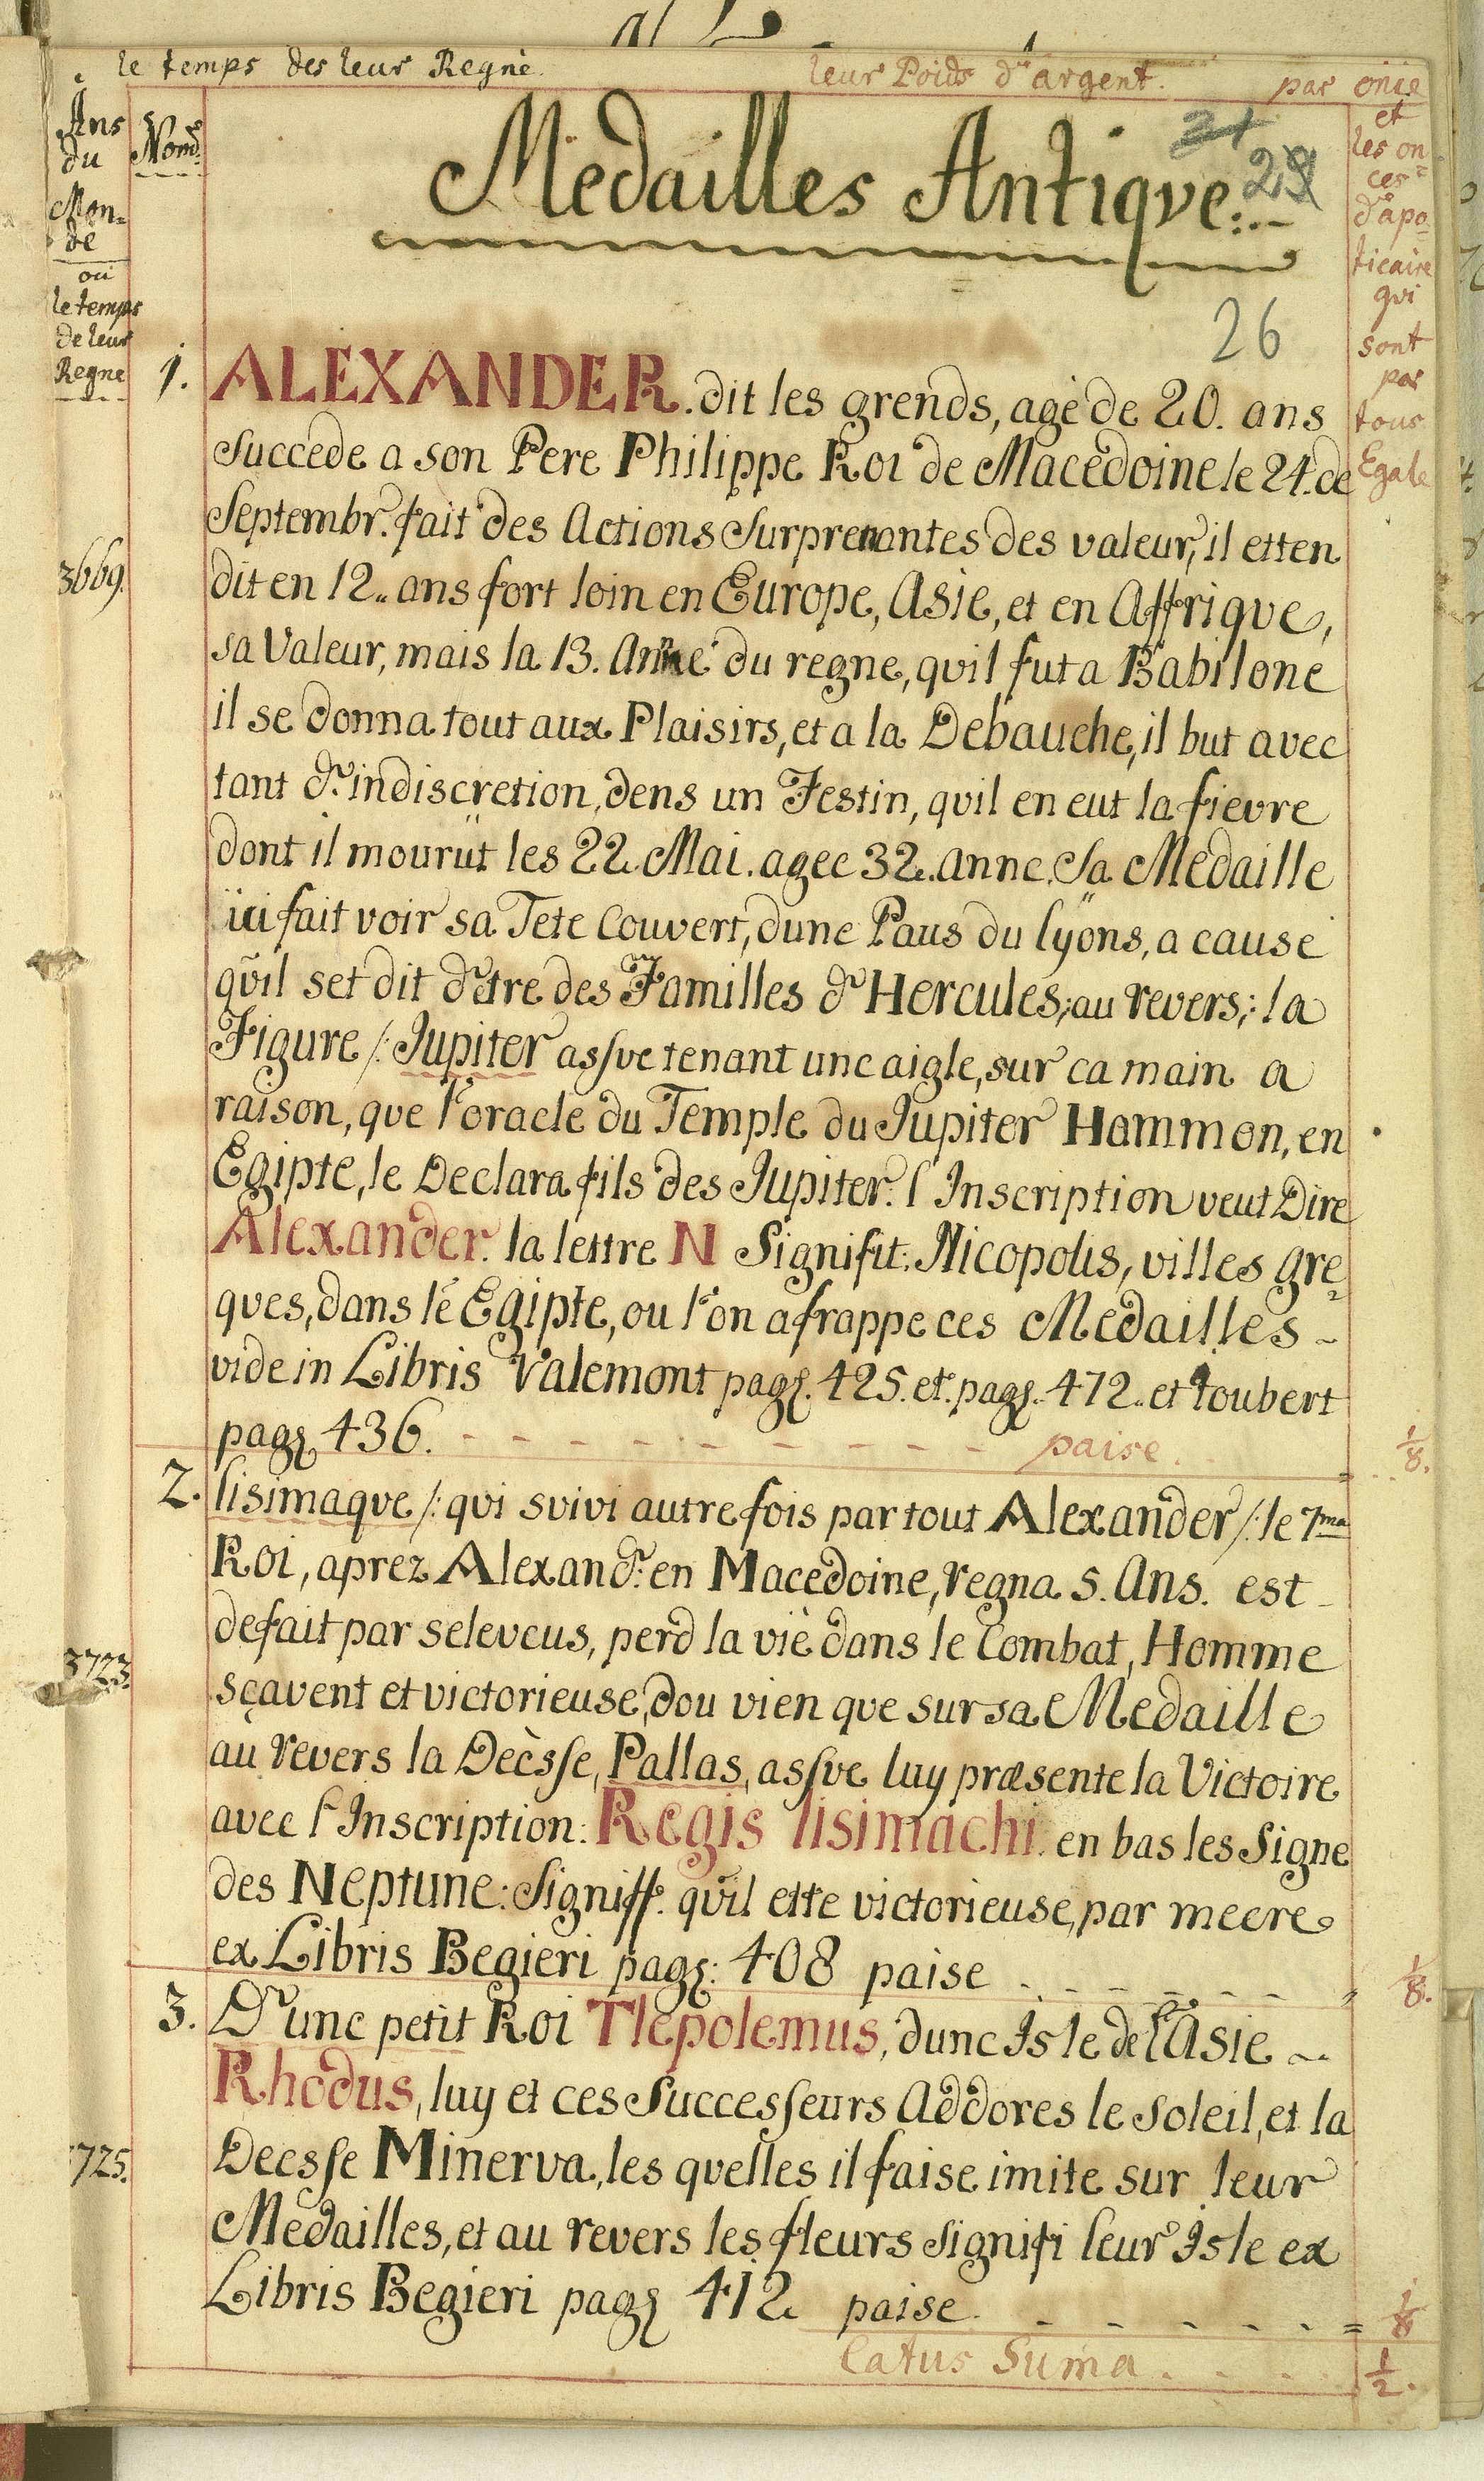 le temps des leur Regnè.
leur Poids d'argent. par onie
Ans
du
Mon-
de
ou
le temps
de leur
Regne
Nom̄.
et
les on=
ces
d'apo=
ticaire
qvi
sont
par
tous
Egale
Medailles Antiqve:..-
21
29
26
1. ALEXANDER. dit les grends, agè de 20. ans
Succede a son Pere Philippe Roi de Macedoine le 24. de
Septembr. fait des Actions Surprenantes des valeur, il etten
3669. dit en 12.. ans fort loin en Europe, Asie, et en Affriqve,
sa Valeur, mais la 13. Anné du regne, qvil fut a Babilone
il se donna tout aux Plaisirs, et a la Debauche, il but avec
tant d'indiscretion, dens un Festin, qvil en eut la fievre
dont il mourüt les 22. Mai. agee 32. anne. Sa Medaille
ïci fait voir sa Tete Couvert, dune Paus du lÿons, a cause
qvil set dit d'etre des Familles d'Hercules; au revers;: la
Figure /: Jupiter assve tenant une aigle, sur ca main a
raison, qve l'oracle du Temple du Jupiter Hammon, en
Egipte, le Declara fils des Jupiter. l'Inscription veut Dire
Alexander. la lettre N Signifit: Nicopolis, villes gre=
qves, dans lé Egipte, ou l'on a frappe ces Medailles -
vide in Libris Valemont pag. 425. et. pag. 472.. et Joubert
pag. 436. - - - - - - - - - - paise. = .. 1/8.
2. lisimaqve /: qvi svivi autre fois par tout Alexander /: le 7ma
Roi, aprez Alexand: en Macedoine, regna 5. Ans. est -
defait par selevcus, perd la viè dans le Combat, Homme
3723. sçavent et victorieuse, dou vien qve sur sa Medaille
au revers la Deèsse, Pallas, assve luy præsente la Victoire
avec l'Inscription: Regis lisimachi. en bas les Signe
des Neptune: Signiff. qvil ette victorieuse, par meere
ex Libris Begieri pag: 408 paise . - - - - - = 1/8.
3. D'une petit Roi Tlepolemus, dunc Isle de l'Asie ~
Rhodus, luy et ces Successeurs Addores le Soleil, et la
3725. Deesse Minerva, les qvelles il faise imite sur leur
Medailles, et au revers les fleurs signifi leur Isle ex
Libris Begieri pag 412 paise. - - - - - = 1/8
Latus Suma. . . . 1/2.